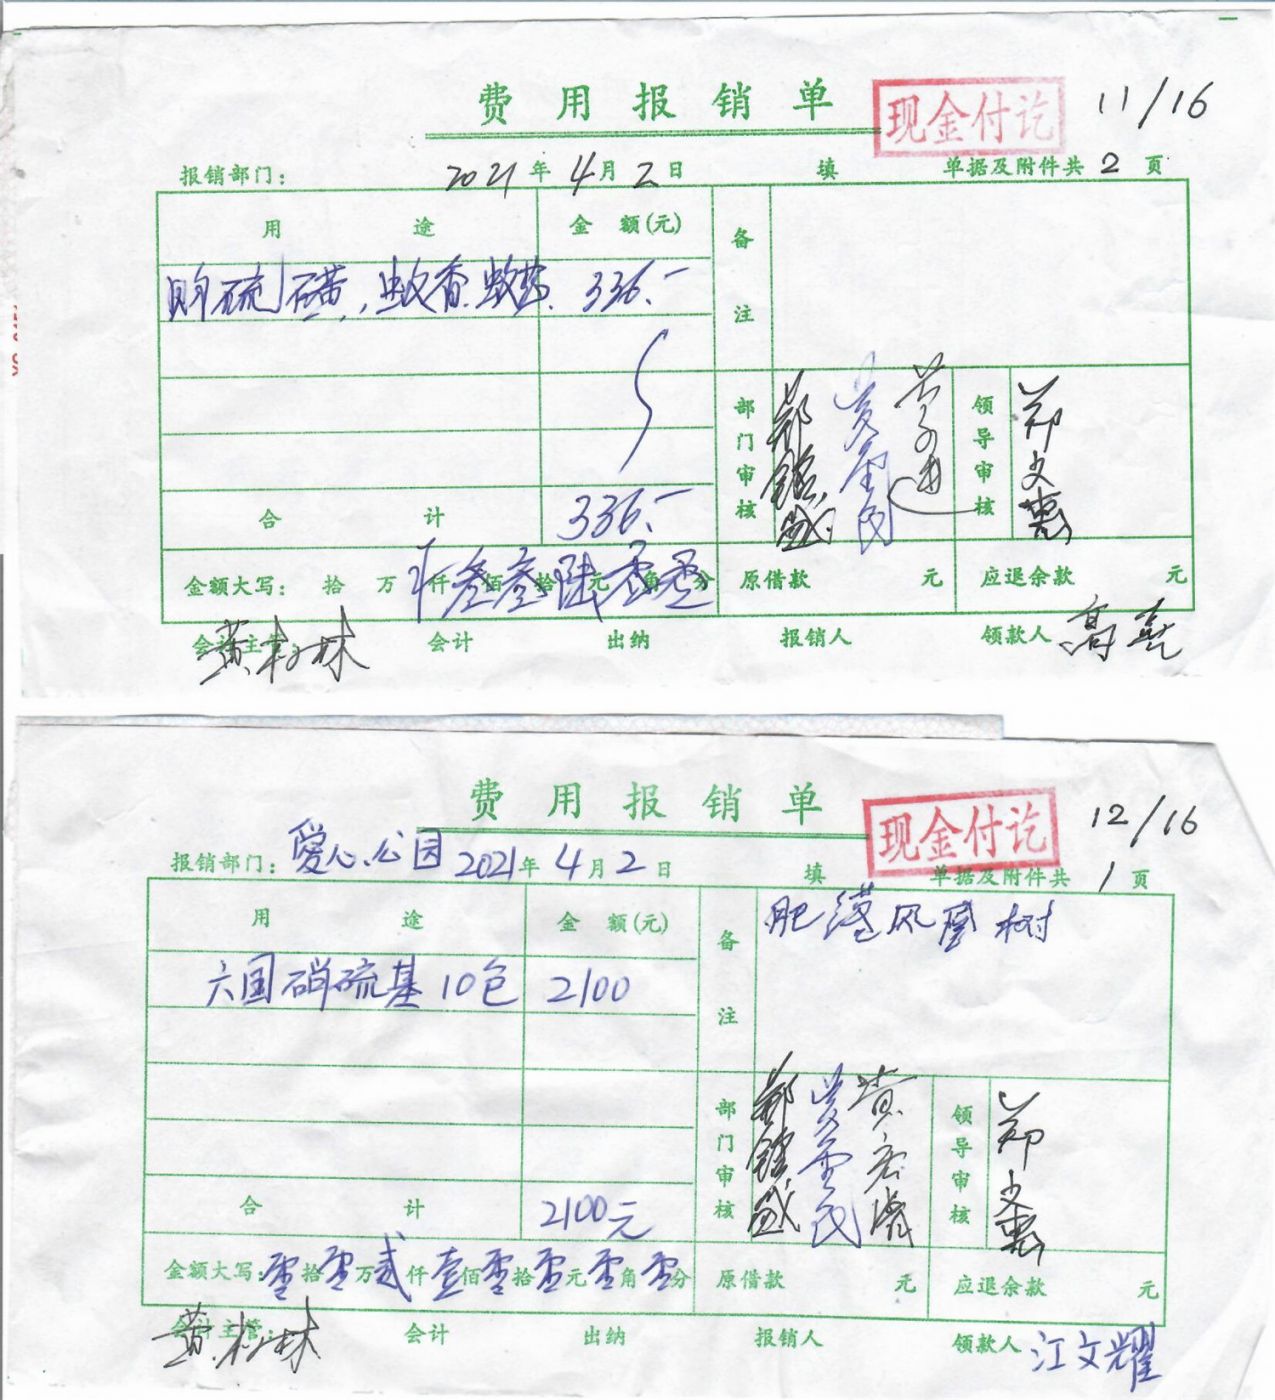 费用报销单 现金付讫 11/16
报销部门： 2021年4月2日 填 单据及附件共2页
用途 金额(元) 备注
购硫磺,蚊香.蚊药. 336.-
合计 336.-
部门审核 领导审核 郑文惠
金额大写： 拾 万 仟叁佰叁拾陆元零角零分 原借款 元 应退余款 元
会计主管 黄树林 会计 出纳 报销人 领款人 高喜
费用报销单 现金付讫 12/16
报销部门：爱心公园 2021年4月2日 填 单据及附件共1页
用途 金额(元) 备注 肥 凤凰树
六国硝硫基10包 2100
合计 2100元
部门审核 领导审核 郑文惠
金额大写：零拾零万贰仟壹佰零拾零元零角零分 原借款 元 应退余款 元
会计主管： 黄树林 会计 出纳 报销人 领款人 江文耀